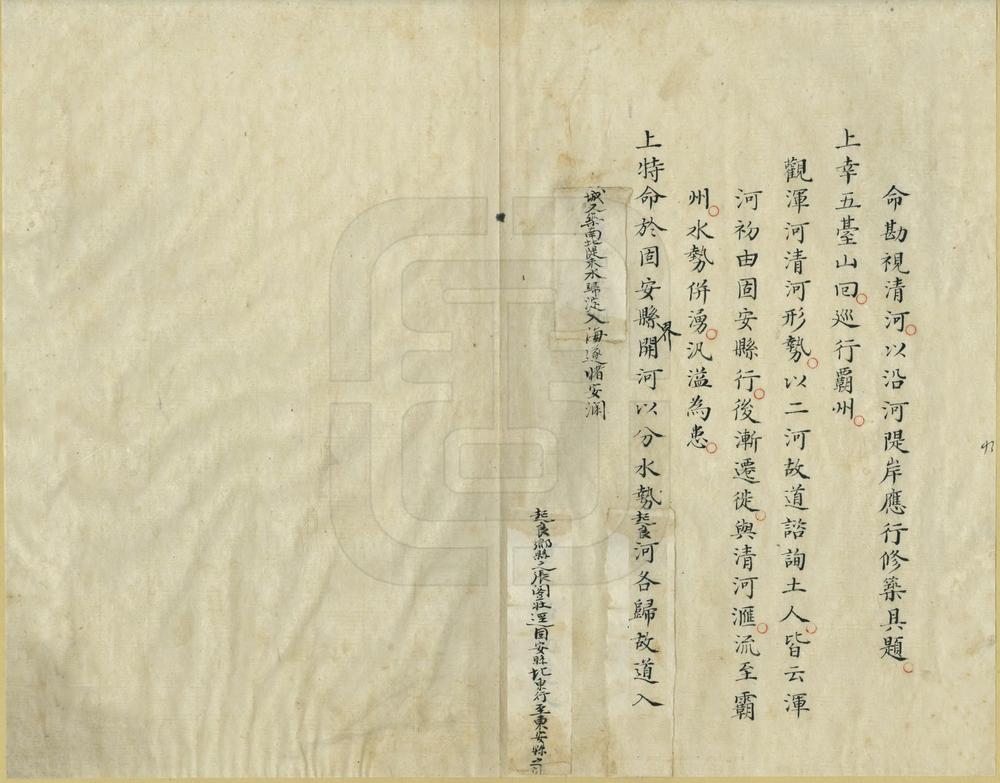 命勘視清河以沿河隄岸應行修築具題
上幸五臺山回巡行霸州
觀渾河清河形勢以二河故道諮詢土人皆云渾
河初由固安縣行後漸遷徙與清河滙流至霸
州水勢併湧汎溢為患
上特命於固安縣界開河以分水勢起良河各歸故道入
城又築南北隄束水歸淀入海遂慴安瀾
起良鄉縣之張閣莊逕固安縣北東行至東安縣之